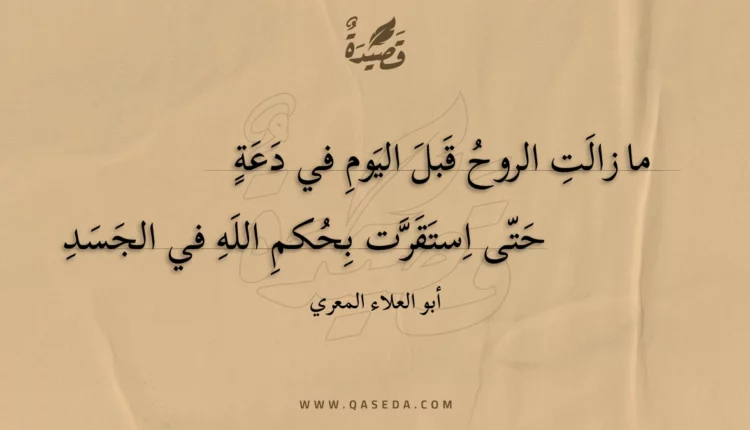 قَصِيْدَةٌ
ما زالَتِ الروحُ قَبلَ اليَومِ في دَعَةٍ
حَتّى اِستَقَرَّت بِحُكمِ اللَهِ في الجَسَدِ
أبو العلاء المعري
WWW.QASEDA.COM